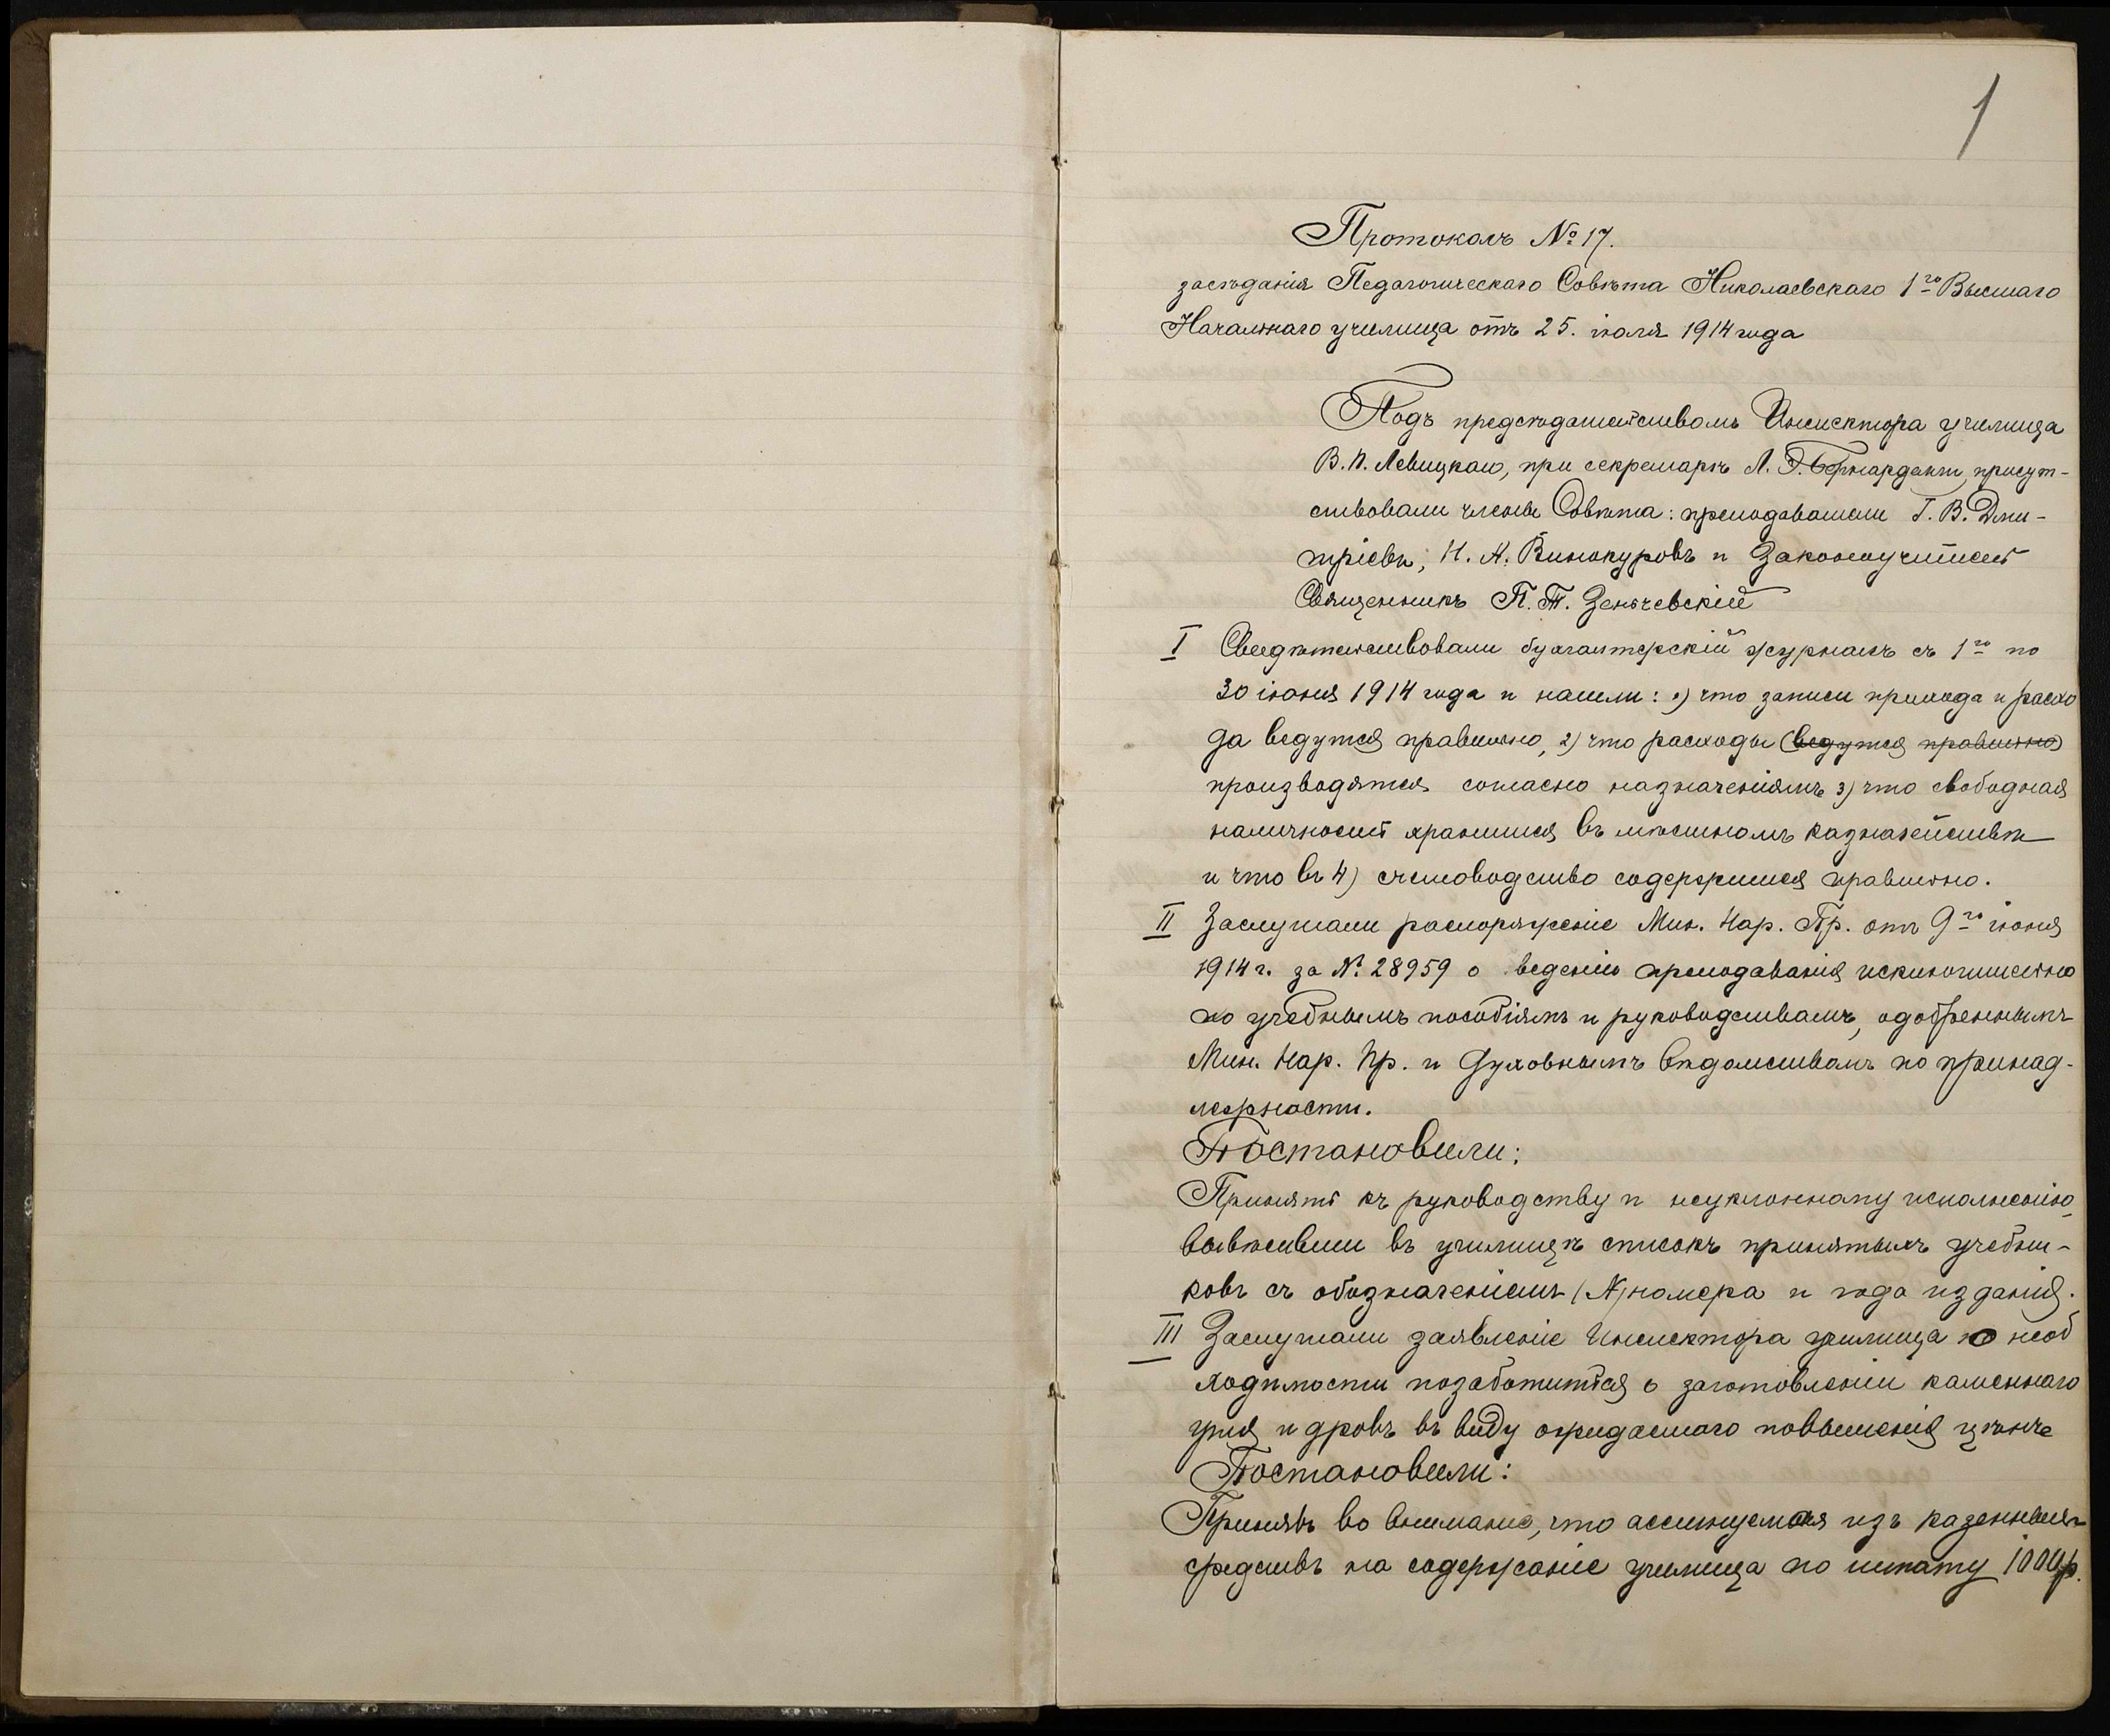 1
Протоколъ № 17.
засѣданія Педагогическаго Совѣта Николаевскаго 1го Высшаго
Начальнаго училища отъ 25. іюля 1914 года
Подъ предсѣдательствомъ Инспектора училища
В. П. Левицкаго, при секретарѣ Л. Г. присут-
ствовали члены Совѣта: преподаватели Г. В. Дми-
тріевъ, Н. А. Винокуровъ и Законоучитель
Священникъ П. Т. Зеньчевскій
I Свидѣтельствовали бухгалтерскій журналъ съ 1го по
30 іюня 1914 года и нашли: 1) что записи прихода и расхо
да ведутся правильно, 2) что расходы (ведутся правильно)
производятся согласно назначеніямъ 3) что свободная
наличность хранится въ мѣстномъ казначействѣ
и что въ 4) счетоводство содержится правильно.
II Заслушали распоряженіе Мин. Нар. Пр. отъ 9го іюня
1914 г. за № 28959 о веденіи преподаванія исключительно
по учебнымъ пособіямъ и руководствамъ, одобреннымъ
Мин. Нар. Пр. и Духовнымъ вѣдомствомъ по принад-
лежности.
Постановили:
Принять къ руководству и неуклонному исполненію,
вывѣсивши въ училищѣ списокъ принятыхъ учебни-
ковъ съ обозначеніемъ (№) номера и года изданія.
III Заслушали заявленіе Инспектора училища о необ
ходимости позаботиться о заготовленіи каменнаго
угля и дровъ въ виду ожидаемаго повышенія цѣнъ
Постановили:
Принявъ во вниманіе, что ассигнуемая изъ казенныхъ
средствъ на содержаніе училища по штату 1000 р.